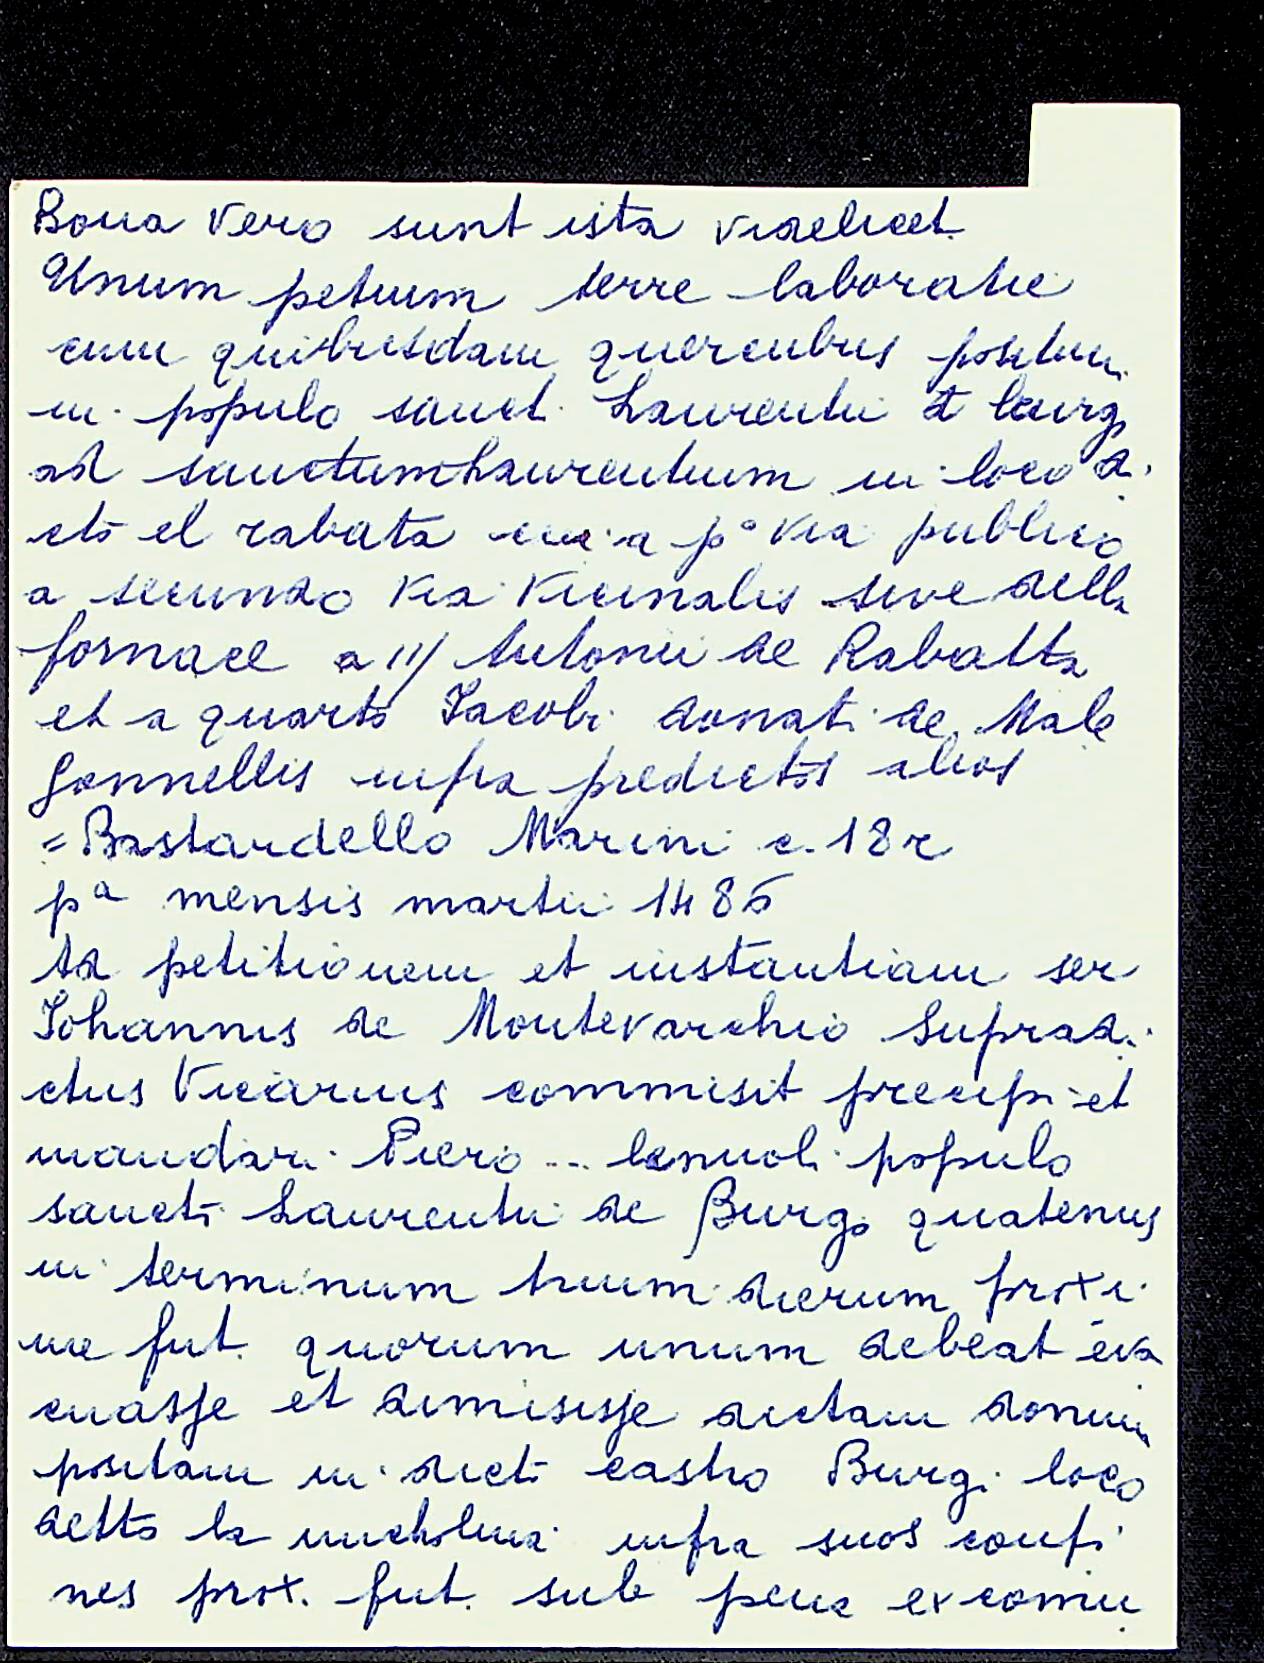 Bona vero sunt ista videlicet
Unum petium terre laboratie
cum quibusdam quercubus positum
in populo sancti Laurentii
ad sanctum Laurentium in loco di
cto el rabata cui a p° via publico
a secundo via vicinalis sive della
fornace a 11/ Antonii de Rabatta
et a quarto Iacobi donati de Male
gonnellis infra predictos alios
= Bastardello Marini c. 18r
pª mensis martii 1486
Ad petitionem et instantiam ser
Iohannis de Montevarchio Supradi
ctus Vicarius commisit precipi et
mandari Piero ... populo
sancti Laurentii de Burgo quatenus
in terminum trium dierum proxi
me fut. quorum unum debeat eva
cuasse et dimisisse dictam domum
positam in dicto castro Burgi loco
detto la infra suos confi
nes prox. fut. sub pena excomu